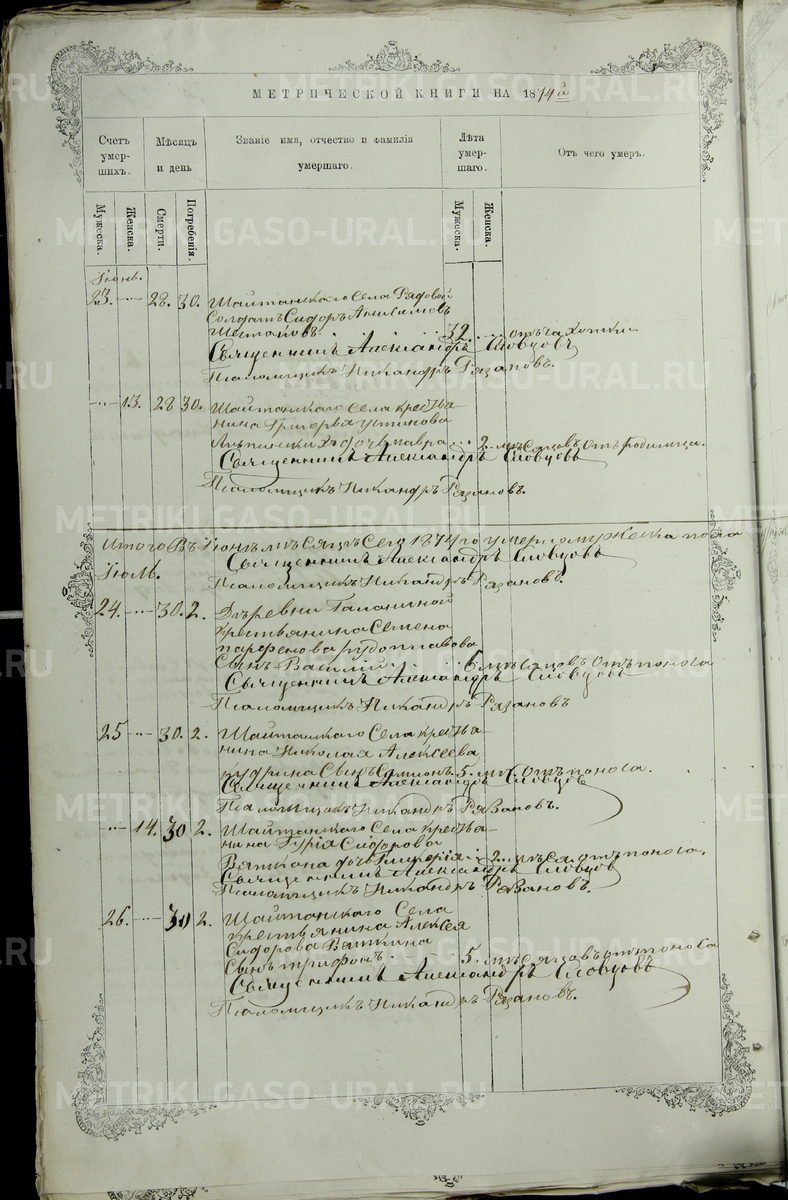 МЕТРИЧЕСКОЙ КНИГИ НА 1874й
Счетъ умер- шихъ.
Мѣсяцъ и день
Званіе имя, отчество и фамилія умершаго.
Лѣта умер- шаго.
Отъ чего умеръ.
Мужеска.
Женска.
Смерти.
Погребенія.
Мужеска.
Женска.
Іюнь.
23. 28. 30. Шайтанскаго Села Рядовой
Солдатъ Сидоръ Анисимовъ
Шестаковъ. 32 отъ чахотки.
Священникъ Александръ Словцовъ
Псаломщикъ Никандръ Рязановъ.
13. 28 30. Шайтанскаго Села крестья-
нина Григорья Устинова
дочь Мавра 2 мѣсяцовъ отъ родимца.
Священникъ Александръ Словцовъ
Псаломщикъ Никандръ Рязановъ.
Итого Въ Іюнѣ мѣсяцѣ Сего 1874 го умерло мужеска пола
Священникъ Александръ Словцовъ
Псаломщикъ Никандръ Рязановъ.
Іюль.
24. 30. 2. Деревни
крестьянина Семена
Парфенова
Сынъ Василій 5 мѣсяцовъ отъ поноса
Священникъ Александръ Словцовъ
Псаломщикъ Никандръ Рязановъ
25 30. 2. Шайтанскаго Села крестья-
нина Николая Алексеева
Кудрина Сынъ 5. мѣ. отъ поноса.
Священникъ Александръ Словцовъ
Псаломщикъ Никандръ Рязановъ.
14. 30 2. Шайтанскаго Села крестья-
нина Гурія Сидорова
Вяткина дочь 2 мѣся. отъ поноса.
Священникъ Александръ Словцовъ
Псаломщикъ Никандръ Рязановъ.
26. 30 2. Шайтанскаго Села
крестьянина Алексея
Сидорова Вяткина
Сынъ Трифонъ. 5. мѣсяцовъ отъ поноса
Священникъ Александръ Словцовъ
Псаломщикъ Никандръ Рязановъ.
METRIKI.GASO-URAL.RU